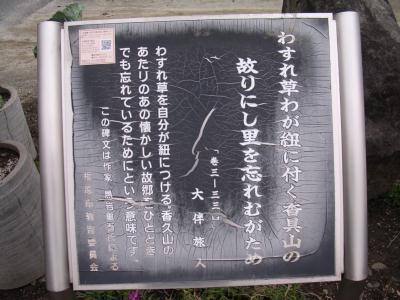 わすれ草わが紐に付く香具山の
故りにし里を忘れむがため
（巻三―三三四）
大伴旅人
わすれ草を自分が紐につける。香久山の
あたりのあの懐かしい故郷をひととき
でも忘れているためにという意味です。
この碑文は作家
による
教育委員会